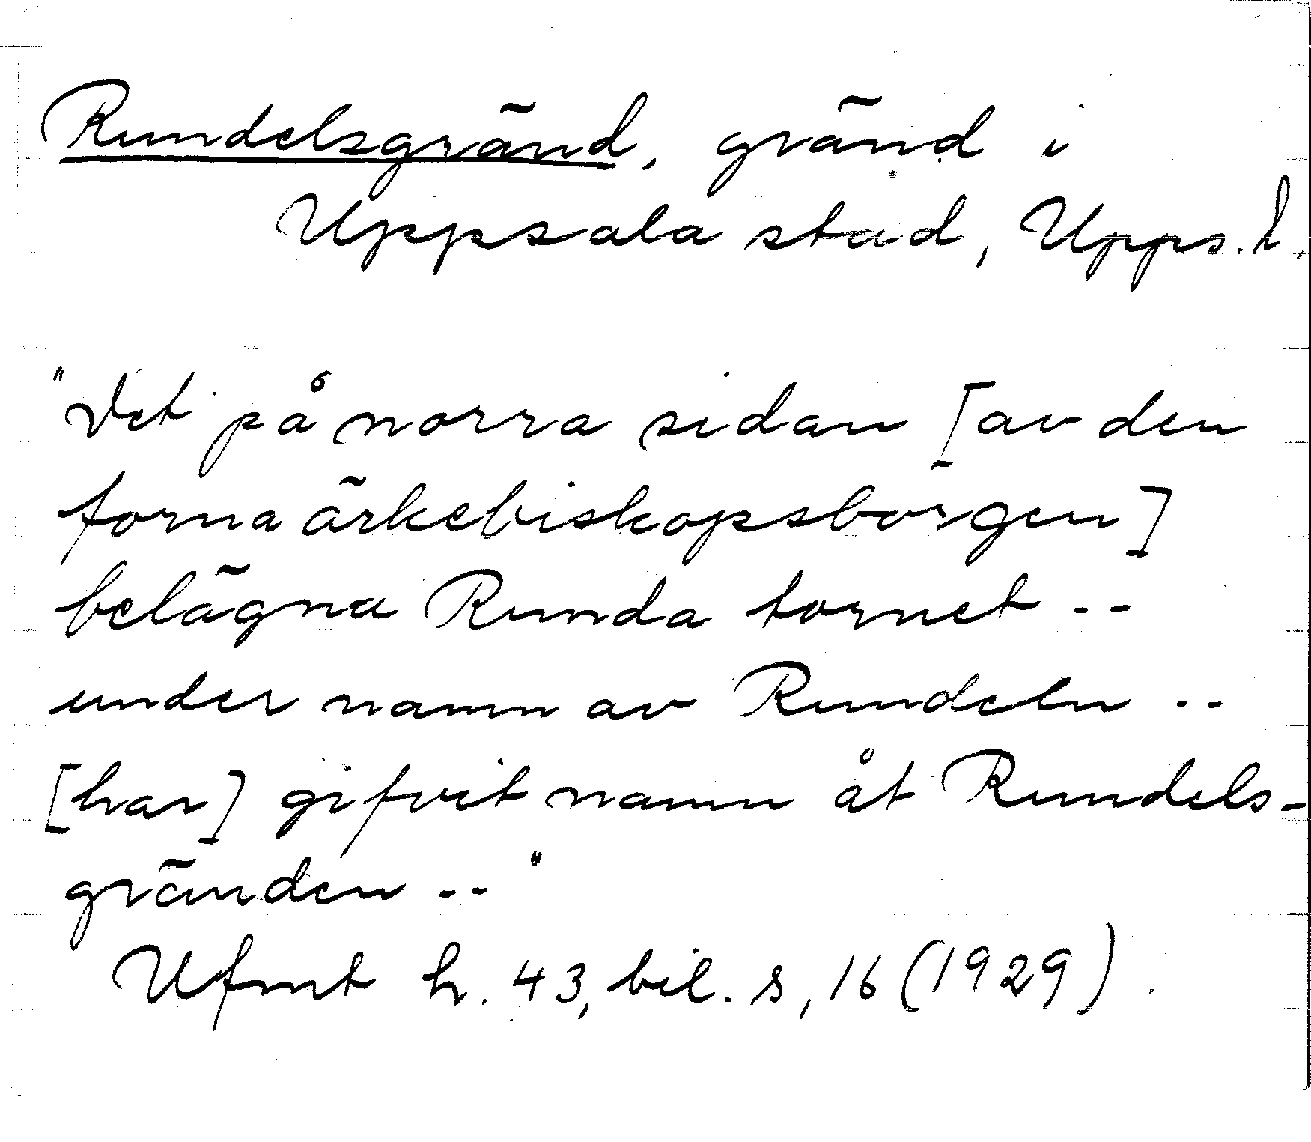 Rundelsgränd, gränd i
Uppsala stad, Upps. l.
"Det på norra sidan [av den
forna ärkebiskopsborgen]
belägna Runda tornet --
under namn av Rundeln --
[har] gifvit namn åt Rundels-
gränden --"
Ufmt h. 43, bil. s, 16 (1929)